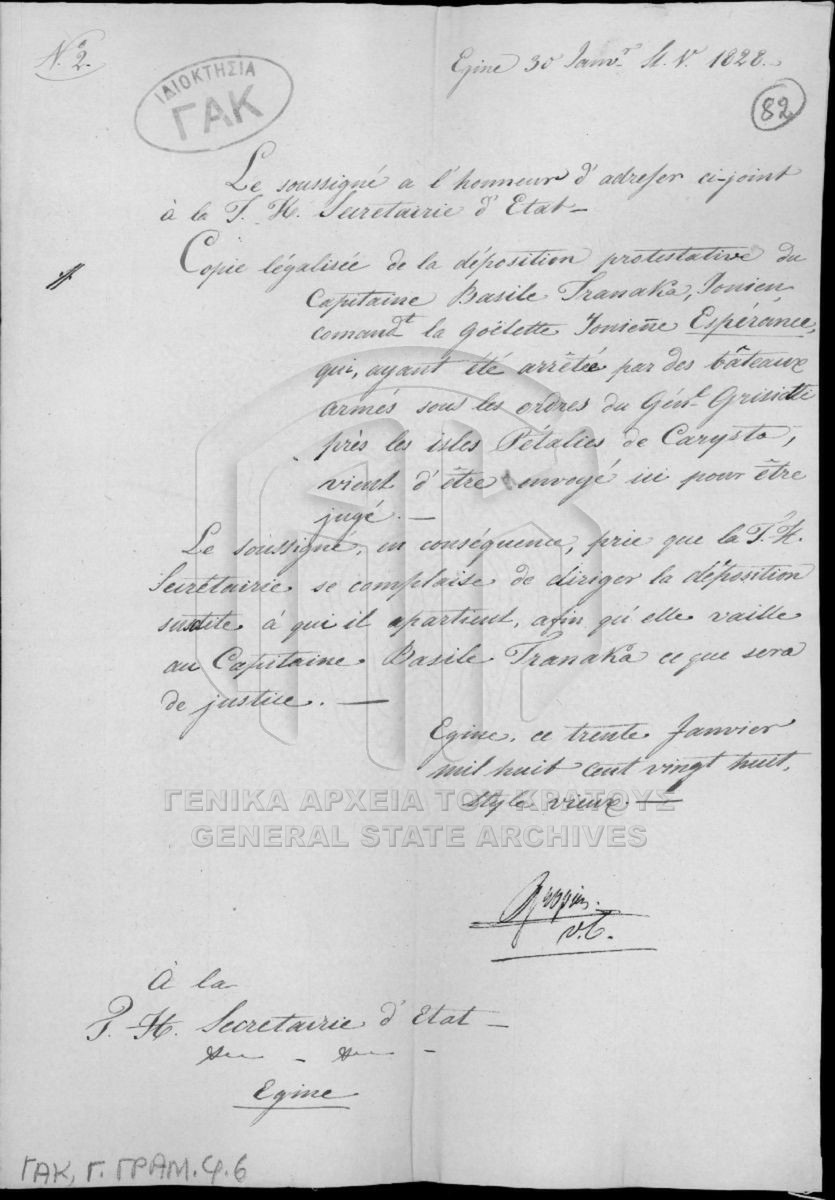 N.º 2.
ΙΔΙΟΚΤΗΣΙΑ
ΓΑΚ
Egine 30 Janv.r St. V. 1828.
82
Le soussigné a l'honneur d'adresser ci-joint
à la T. H. Secretairie d'Etat —
Copie légalisée de la déposition protestative du
Capitaine Basile Franaka, Ionien
comand.t la goëlette Ionieñe Espérance,
qui, ayant été arrêtée par des bâteaux
armés sous les ordres du Gén.l Grisiotti
près les isles Pétalies de Carysto,
vient d'être envoyé ici pour être
jugé. —
Le soussigné, en conséquence, prie que la T. H.
Secrétairie se complaise de diriger la déposition
susdite à qui il apartient, afin qu'elle vaille
au Capitaine Basile Franaka ce que sera
de justice. —
Egine, ce trente Janvier
mil huit cent vingt huit,
style vieux. —
ΓΕΝΙΚΑ ΑΡΧΕΙΑ ΤΟΥ ΚΡΑΤΟΥΣ
GENERAL STATE ARCHIVES
v.C.
À la
T. H. Secretairie d'Etat —
Egine
ΓΑΚ, Γ. ΓΡΑΜ. Φ. 6